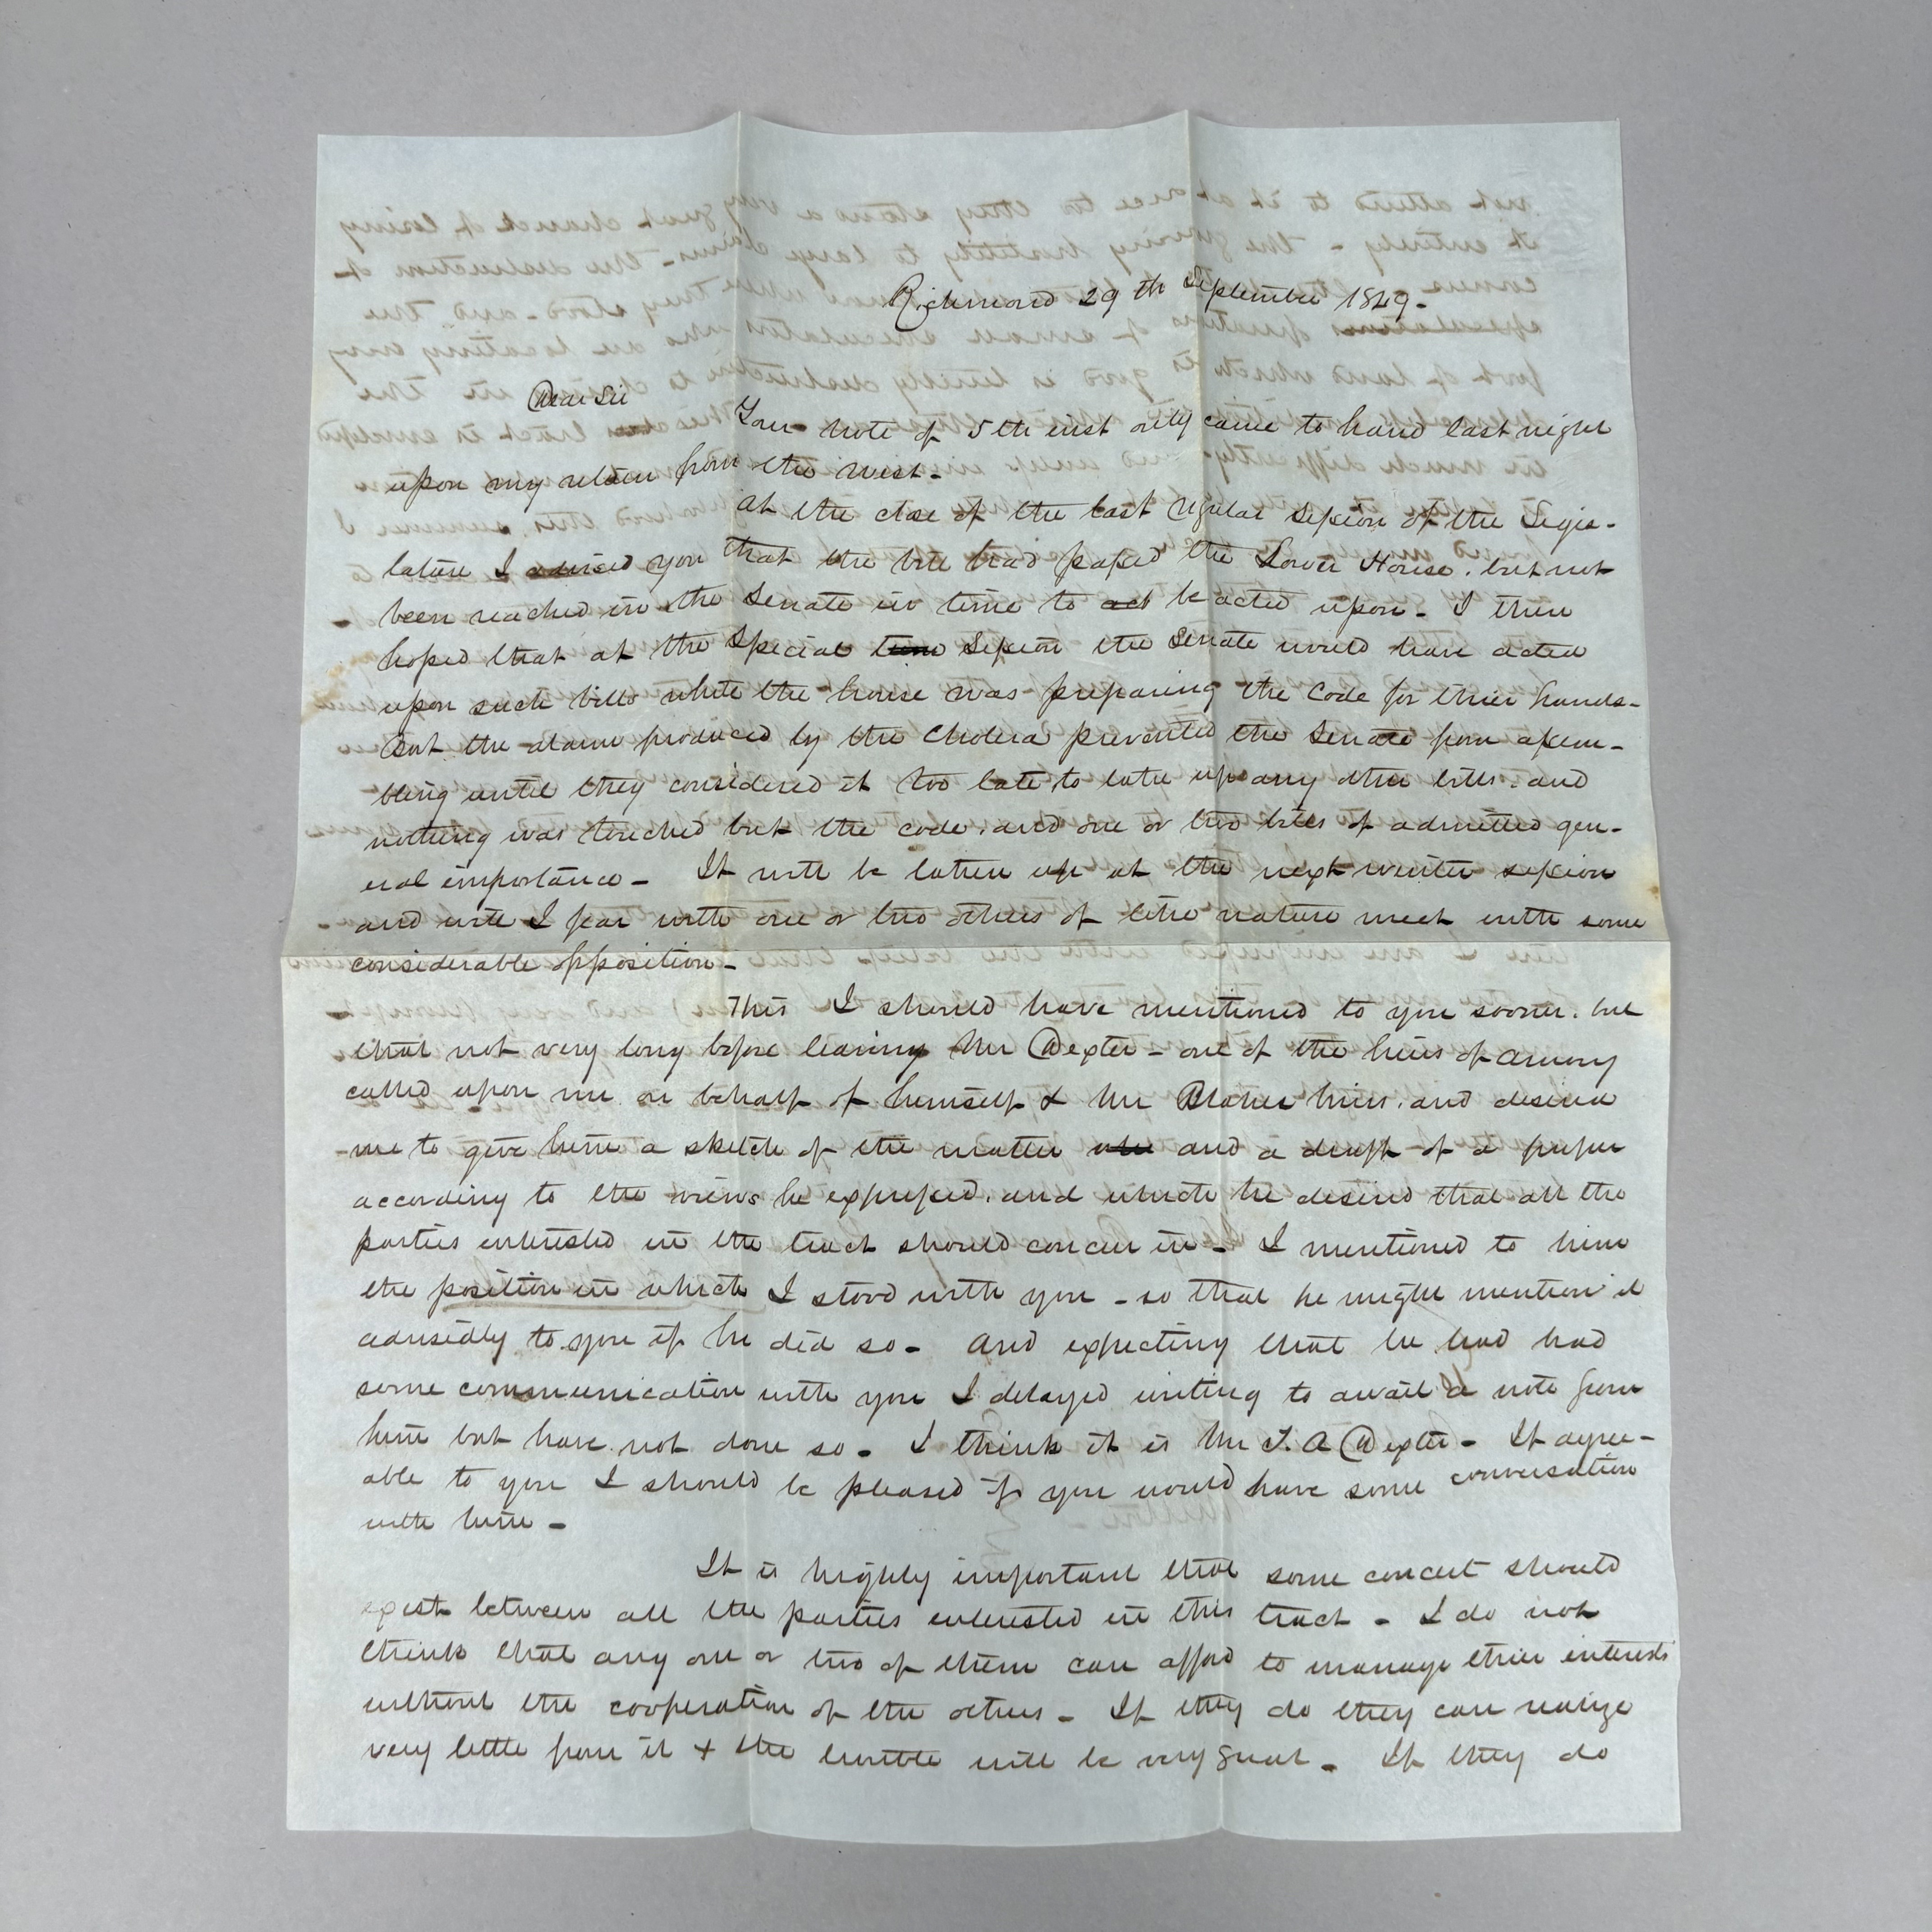 Richmond 29th September 1849.
Dear Sir
Your note of 5th inst only came to hand last night
upon my return from the west.
At the close of the last regular session of the Legis-
lature I advised you that the bill had passed the Lower House. but not
been reached in the Senate in time to act be acted upon - I then
hoped that at the special time session the Senate would have acted
upon such bills while the house was preparing the Code for their hands -
But the alarm produced by the Cholera prevented the Senate from assem-
bling until they considered it too late to take up any other bills. and
nothing was touched but the code. and one or two bills of admitted gen-
eral importance - It will be taken up at the next winter session
and will I fear with one or two others of like nature meet with some
considerable opposition -
This I should have mentioned to you sooner. but
that not very long before leaving Mr Dexter - one of the heirs of Amory
called upon me on behalf of himself & the heirs. and desired
me to give him a sketch of the matter and a draft of a paper
according to the views he expressed. and which he desired that all the
parties interested in the tract should concur in - I mentioned to him
the position in which I stood with you - so that he might mention it
advisedly to you if he did so - And expecting that he had had
some communication with you I delayed writing to await a note from
him but have not done so - I think it is Mr Dexter - If agree-
able to you I should be pleased if you would have some conversation
with him -
It is highly important that some concert should
exist between all the parties interested in this tract - I do not
think that any one or two of them can afford to manage their interests
without the cooperation of the others - If they do they can realize
very little from it & the trouble will be very great - If they do